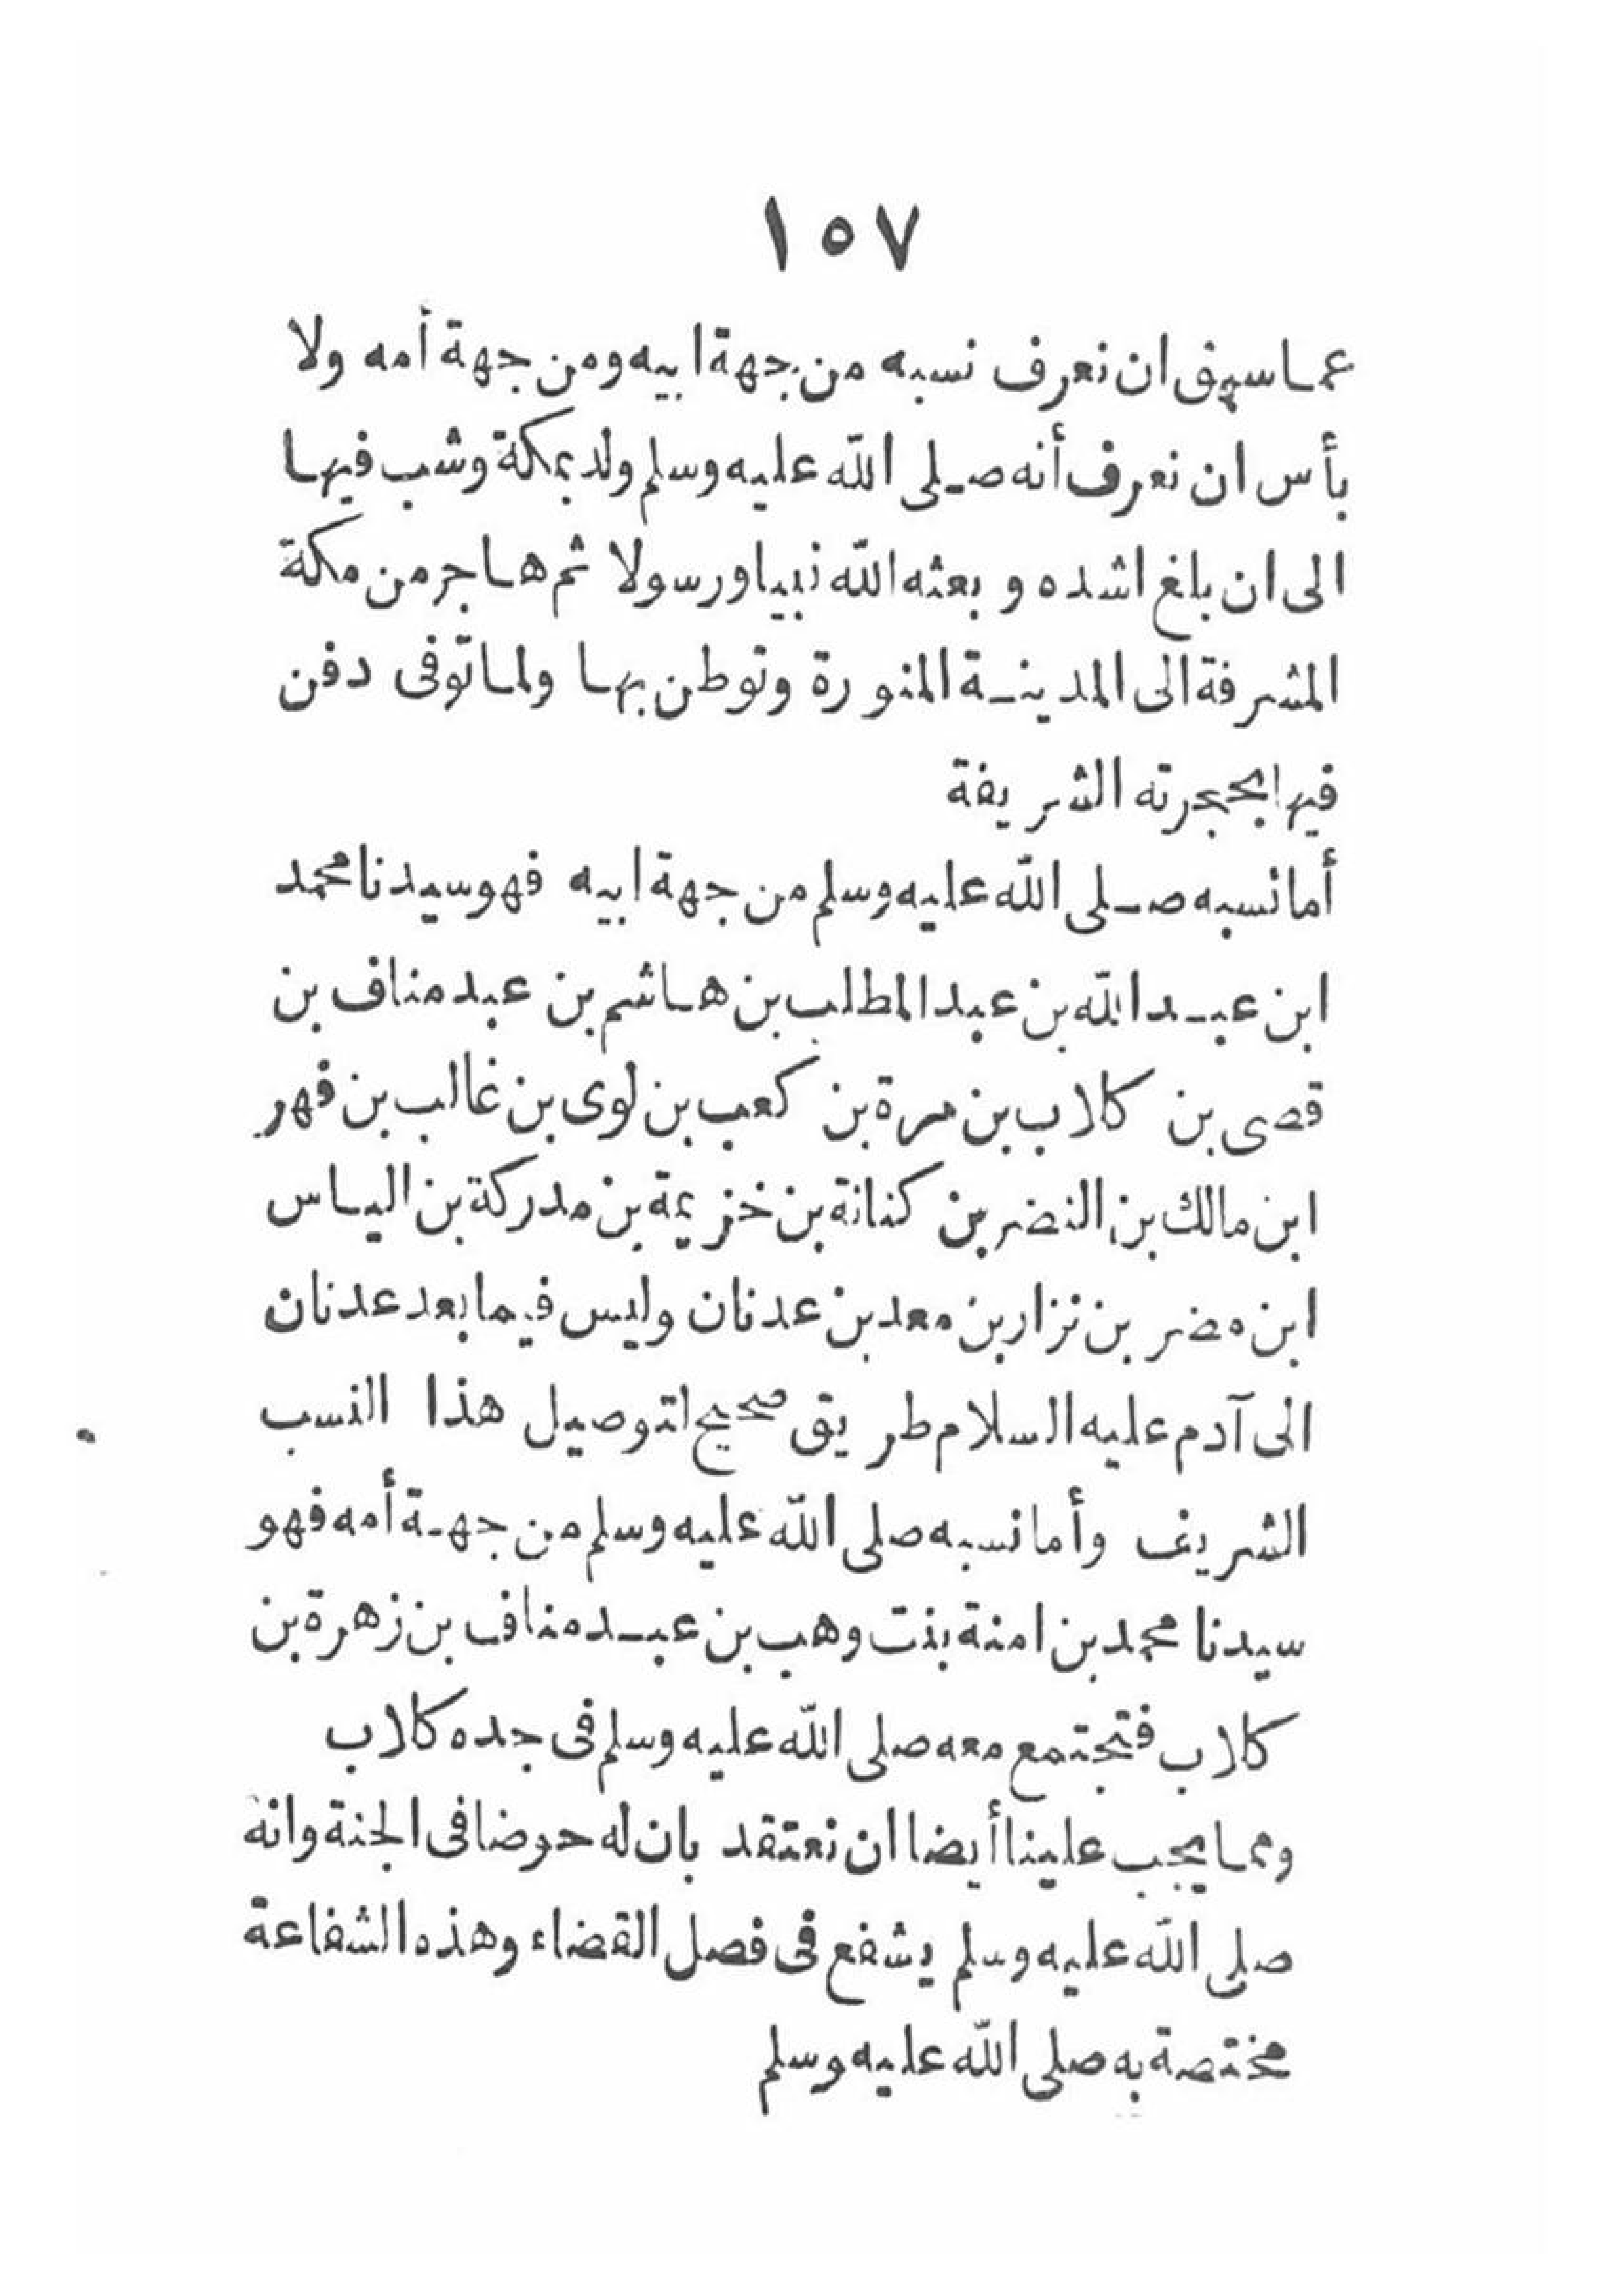 ١٥٧
عما سبق ان نعرف نسبه من جهة ابيه ومن جهة أمه ولا
بأس ان نعرف أنه صلى الله عليه وسلم ولد بمكة وشب فيها
الى ان بلغ اشده و بعثه الله نبيا ورسولا ثم هاجر من مكة
المشرفة الى المدينة المنورة وتوطن بها ولما توفى دفن
فيها بحجرته الشريفة
أما نسبه صلى الله عليه وسلم من جهة ابيه فهو سيدنا محمد
ابن عبد الله بن عبد المطلب بن هاشم بن عبد مناف بن
قصى بن كلاب بن مرة بن كعب بن لوى بن غالب بن فهر
ابن مالك بن النضر بن كنانة بن خزيمة بن مدركة بن الياس
ابن مضر بن نزار بن معد بن عدنان وليس فيما بعد عدنان
الى آدم عليه السلام طريق صحيح لتوصيل هذا النسب
الشريف وأما نسبه صلى الله عليه وسلم من جهة أمه فهو
سيدنا محمد بن امنة بنت وهب بن عبد مناف بن زهرة بن
كلاب فتجتمع معه صلى الله عليه وسلم فى جده كلاب
ومما يجب علينا أيضا ان نعتقد بان له حوضا فى الجنة وانه
صلى الله عليه وسلم يشفع فى فصل القضاء وهذه الشفاعة
مختصة به صلى الله عليه وسلم